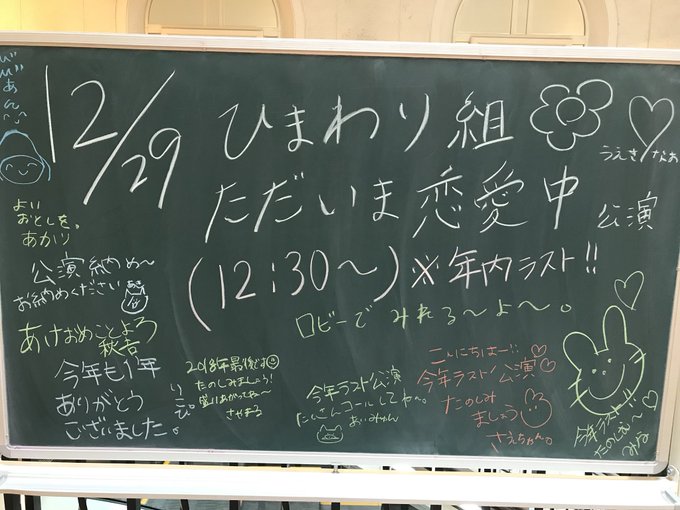 12/29
ひまわり組
うえきなお
ただいま恋愛中
公演
(12:30〜)※年内ラスト!!
ロビーで みれる〜よ〜。
じぃじあん
よい
おとしを。
あかり
公演納め〜
お納めください
あけおめことよろ
秋吉
今年も1年
ありがとう
ございました。
りこぴ。
2018年最後です
たのしみましょう!
盛りあがってね〜
さやまる
今年ラスト公演
たくさんコールしてね〜。
あいみゃん
こんにちはー!!
今年ラスト公演
たのしみ
ましょう
さえちゃん。
今年ラスト!!
たのしも〜
みな